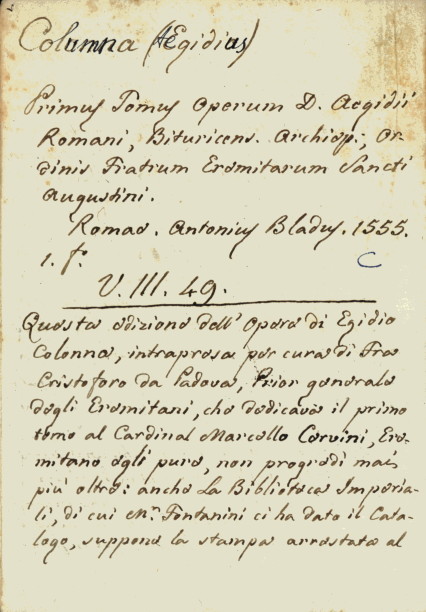 Columna (Ægidius)
Primus Tomus Operum D. Aegidii
Romani, Bituricens. Archiep., Or-
dinis Fratrum Eremitarum Sancti
Augustini.
Romae. Antonius Bladus. 1555.
1. f.° C
V. III. 49.
Questa edizione dell' Opere di Egidio
Colonna, intrapresa per cura di Fra
Cristoforo da Padova, Prior generale
degli Eremitani, che dedicava il primo
tomo al Cardinal Marcello Cervini, Ere-
mitano egli pure, non progredì mai
più oltre: anche la Biblioteca Imperia-
li, di cui M.r Fontanini ci ha dato il Cata-
logo, suppone la stampa arrestata al